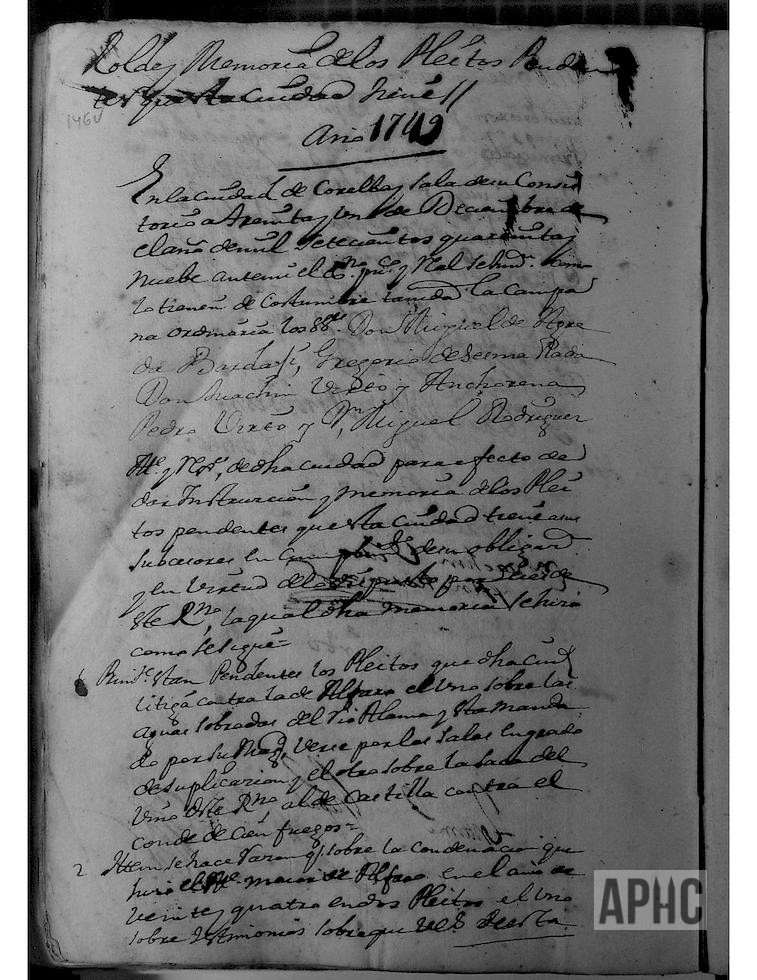 Rolde y Memoria de los Pleitos Pendien
tes que esta ciudad tiene //
146v
Año 1749
En la ciudad de Corella y sala de su Consis
torio a treinta y uno de Diciembre de
el año de mil setecientos quarenta y
nuebe ante mi el Es.no pu.co y Real se han. como
lo tienen de costumbre tañida la campa
na ordinaria los SS.s Don Miguel de Agre
da Bardaxi, Gregorio de Sesma Rada
Don Juachin Virto y Anchorena
Pedro Virto y Miguel Rodriguez
Al.e y R.es, de dha ciudad para efecto de
dar Instruccion y memoria de los Plei
tos pendentes que esta ciudad tiene a sus
subcesores en cumplim.to de su obligaz.
y en virtud de lo dispuesto por Leies de
este R.no, la qual dha memoria se hizo
como se sigue=
1 Prim.te estan Pendentes los Pleitos que dha ciud.
litiga contra la de Alfaro el uno sobre las
aguas sobradas del rio Alama y esta manda
do por su Mag. verse por las salas en grado
de suplicacion y el otro sobre la saca del
vino de este R.no al de Castilla contra el
conde de cien fuegos=
2 Item se hace razon q.e sobre la condenacion que
hizo el Al.e maior de Alfaro en el año de
veinte y quatro en dos Pleitos el uno
sobre testimonios sobre que
APHC